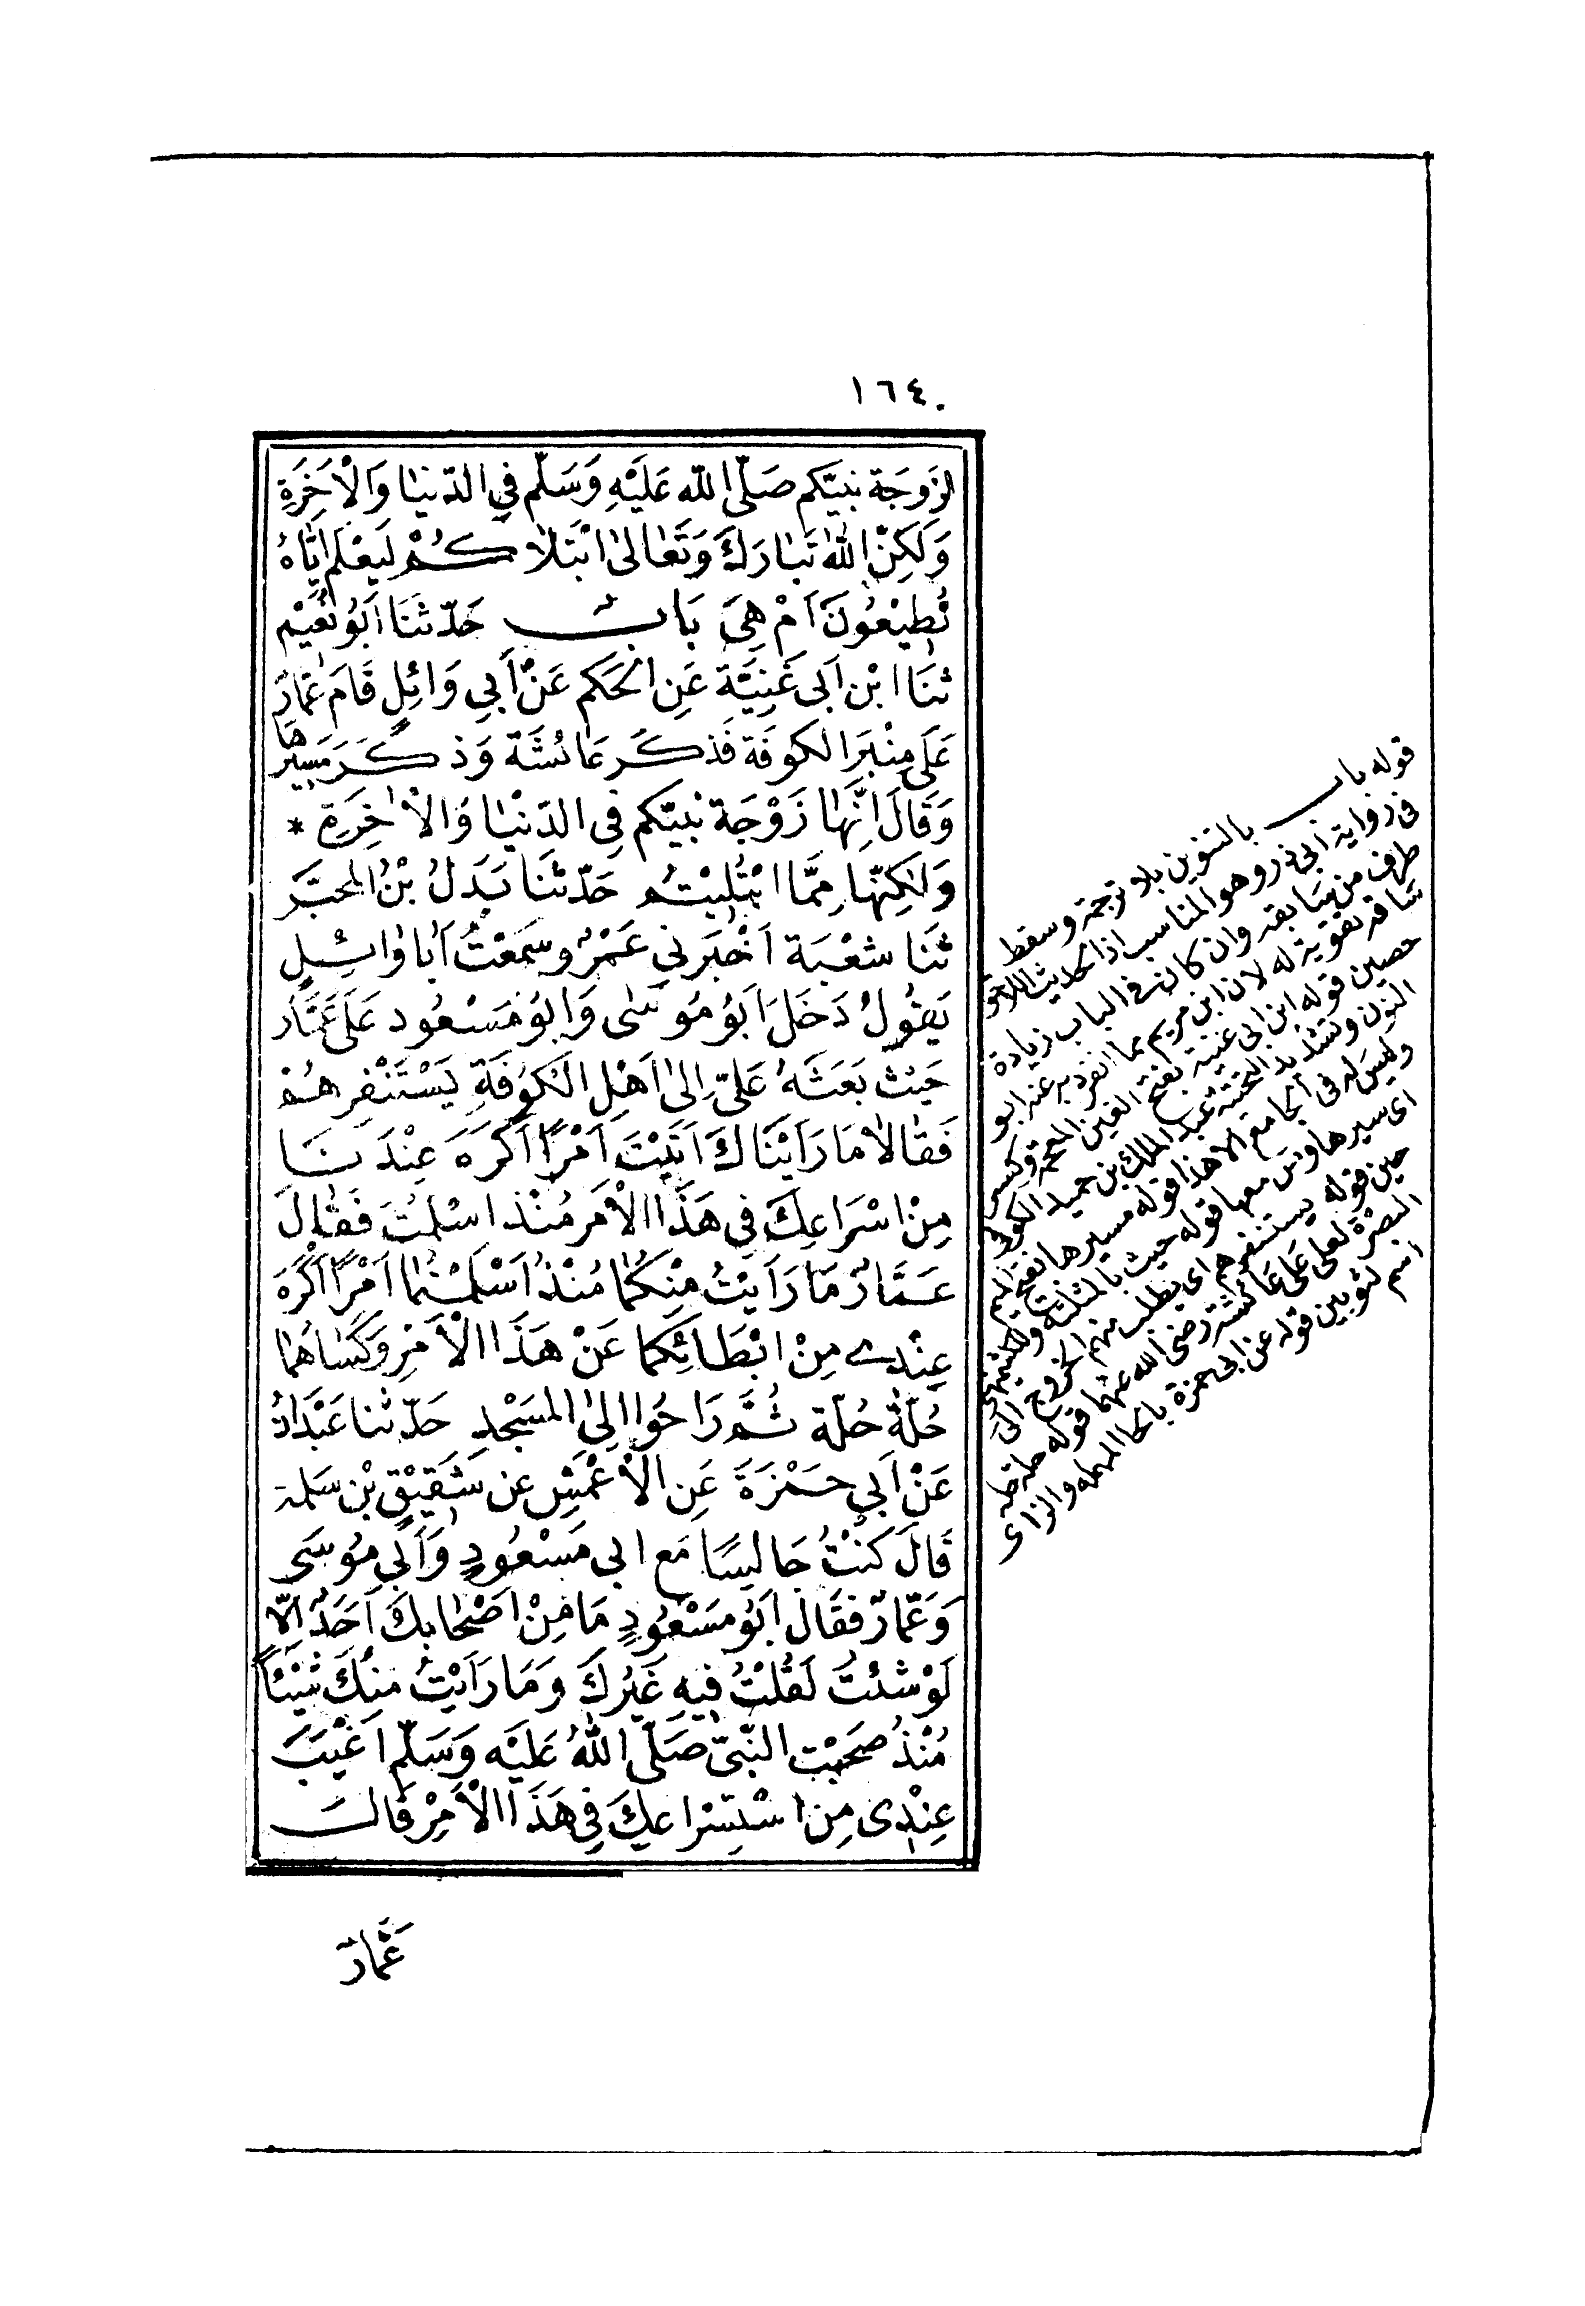 ١٦٤٠
لزَوجَة نبيّكم صَلّى الله عَليْهِ وَسَلّم فِي الدّنيَا وَالْآخَرَةِ
وَلَكِنّ اللهَ تَبَارَكَ وَتَعَالىٰ ابْتَلَاكُمْ لَيَعْلَمَ إِيَّاهُ
تُطِيْعُونَ اَمْ هِىَ بَابٌ حَدّثَنَا اَبُو نُعَيْم
ثنَا ابْن اَبى غَنِيَّة عَنِ الحَكَم عَنْ أَبِي وَائِلٍ قَامَ عَمَّارٌ
عَلَى مِنْبَرَ الكوفَة فَذكَرَ عَائشَةَ وَذكَرَ مَسِيْرَهَا
وَقَالَ اِنَّهَا زَوْجَة نَبيّكم فِي الدّنْيَا وَالْاٰخِرَةِ *
وَلٰكِنّهَا مِمَّا ابْتُلِيْتُم حَدّثنَا بَدَلُ بْنُ المحَبَّر
ثَنَا شعْبَة اَخْبَرَني عَمْرٌو سَمَعْتُ اَبَا وَائِلٍ
يَقُولُ دَخَلَ اَبُو مُوسَٰى وَابُو مَسْعُود عَلَى عَمَّار
حَيْث بَعَثَهُ عَليّ اِلىٰ اَهْلِ الكُوفَةِ يَسْتَنْفِرهُمْ
فَقَالَا مَا رَاَيْنَاكَ اَتَيْتَ اَمْرًا اَكْرَهَ عِنْدَنَا
مِنْ اسْرَاعِكَ فِي هَذَا الْاَمرِ مُنْذ اسْلمْتَ فَقَالَ
عَمَّارٌ مَا رَاَيْتُ مِنْكُمَا مُنْذُ اَسْلَمْتُمَا اَمْرًا اَكْرَهَ
عِنْدِي مِنْ ابْطَائِكُمَا عَنْ هَذَا الْاَمْرِ وَكَسَاهُمَا
حُلّةً حُلّة ثُمَّ رَاحُوا اِلىٰ المسَجْدِ حَدّثنا عَبْدَانُ
عَنْ اَبِي حَمْزَةَ عَنِ الْاَعْمَشِ عن شَقِيْقِ بْنِ سَلَمة
قَالَ كُنْتُ جَالِسًا مَع ابي مَسْعُودٍ وَاَبِي مُوسَى
وَعَمّارٌ فقَالَ اَبُو مسَعُودٍ مَا مِنْ اصْحَابِكَ اَحَدٌ اِلّا
لَوْ شئتُ لَقُلْتُ فِيهِ غَيْرَكَ وَمَا رَاَيْتُ مِنْكَ شَيْئًا
مُنْذُ صَحَبْت النّبىّ صَلّى اللهُ عَلَيْه وَسَلّم اَعْيَبَ
عِنْدِى مِن اسْتِسْرَاعِكَ فِي هَذَا الْاَمْرِ قَالَ
عَمَّارٌ
قوله باب بالتنوين بلا ترجمة وسقط
فى رواية ابى ذر وهو المناسب اذ الحديث اللاحق
طرف من سابقه وان كان فى الباب زيادة
ساقه تقوية له لان ابن مريم مما انفرد به عنه ابو
حصين قوله ابن ابى غنية بفتح الغين المعجمة وكسر
النون وتشديد التحتية عبد الملك بن حميد الكوفى
وليس له فى الجامع الا هذا قوله مسيرها بفتح الميم
اى سيرها ومن معها قوله حيث بالمثلثة
حين قوله يستنفرهم اى يطلب منهم الخروج الى
البصرة لعلى على عائشة رضى الله عنهما قوله حلة حلة
اسم لثوبين قوله عن ابى حمزة بالحا المهملة والزاى